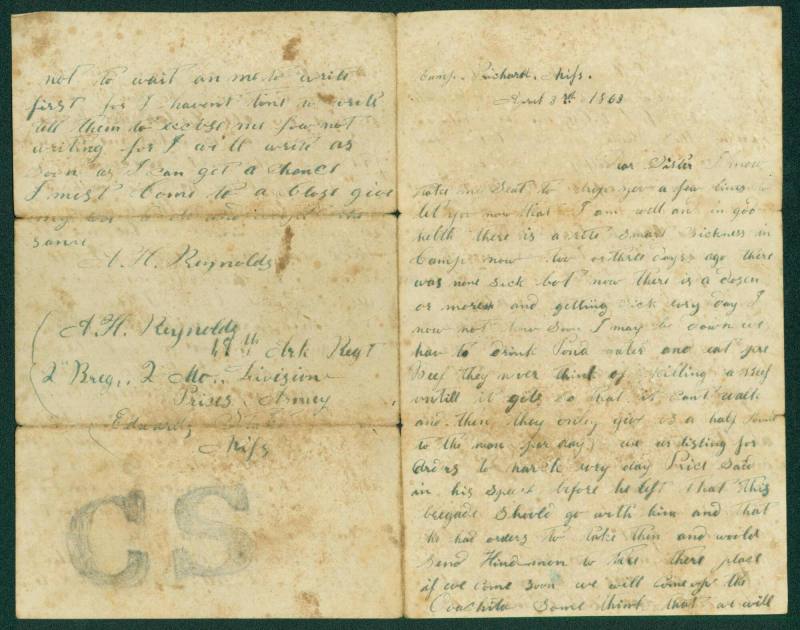 Camp Prichard, Miss.
April 3rd 1863
Dear Sister I now
take me Seat to drop you a few lines to
let you now that I am well and in good
helth there is a rite Smart Sickness in
Camp now two or three days ago there
was none Sick but now there is a dosen
or more and getting Sick evry day I
now not how Soon I may be down we
hav to drink Pond water and eat pore
Beef they never think of killing a Beef
untill it gits so that it cant walk
and then they only giv us a half Pound
to the man per day we ar listing for
Orders to march evry day Price Said
in his Speach before he left that this
bregade Should go with him and that
he had orders to take them and would
Send Hindmon to take there place
if we come Soon we will come up the
Ouachita Some think that we will
not to wait on me to write
first for I havent time to write
tell them to excuse me for not
writing for I will write as
Soon as I can get a chance
I must Come to a Close giv
my
same
A. H. Reynolds
A. H. Reynolds
19th Ark Regt
2 Breg., 2 Mo., Division
Prices Army
Edwards
Miss
CS